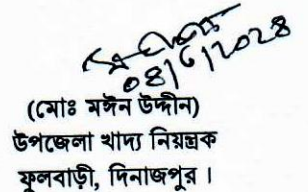 ০৪/৬/২০২৪
(মোঃ মঈন উদ্দীন)
উপজেলা খাদ্য নিয়ন্ত্রক
ফুলবাড়ী, দিনাজপুর।